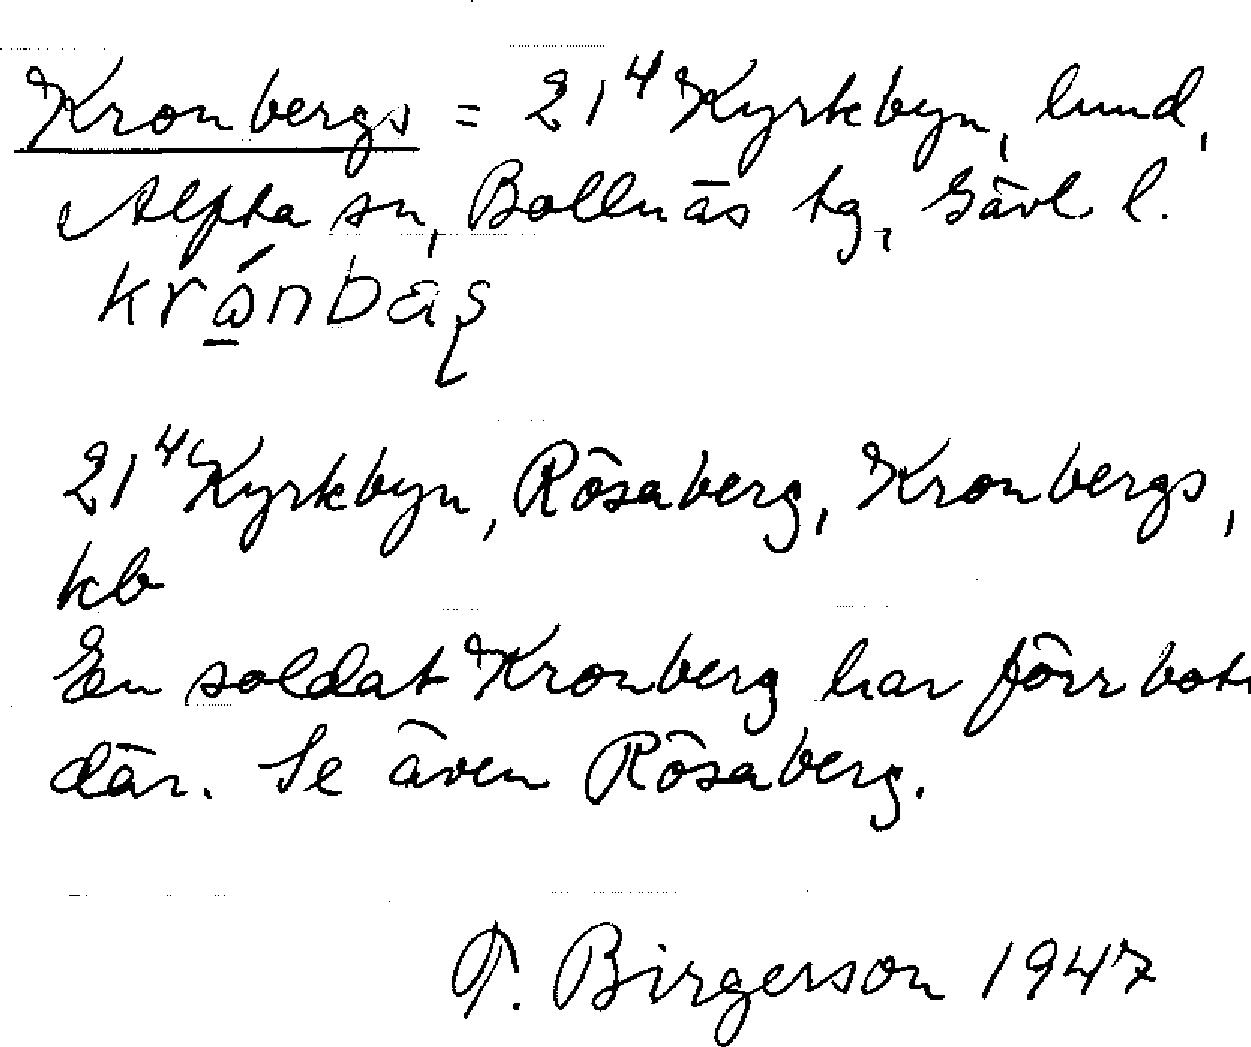 Kronbergs = 21⁴ Kyrkbyn, lund,
Alfta sn, Bollnäs tg, Gävl l.
21⁴ Kyrkbyn, Rösaberg, Kronbergs,
kb
En soldat Kronberg har förr bott
där. Se även Rösaberg.
T. Birgerson 1947